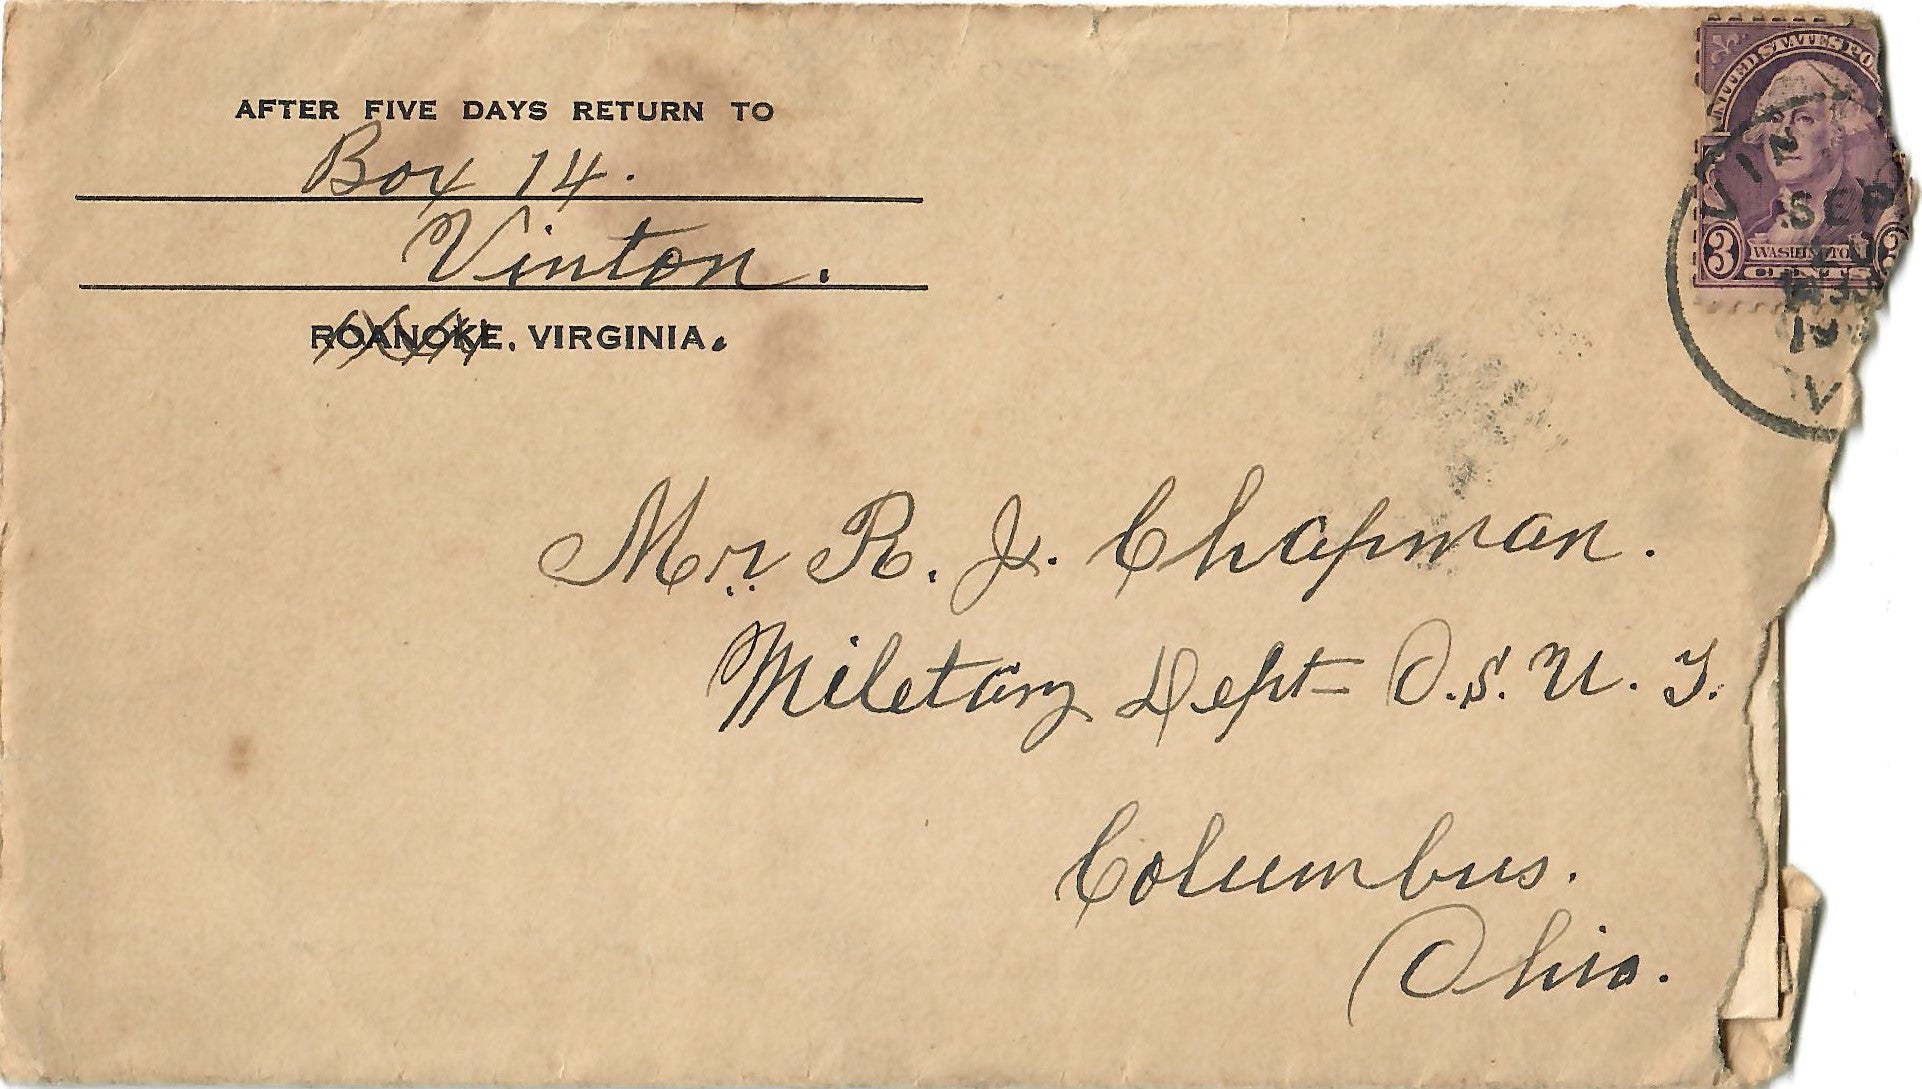 AFTER FIVE DAYS RETURN TO
Box 14.
Vinton.
ROANOKE, VIRGINIA.
UNITED STATES PO
3
WASHINGTON
CENTS
VIN
SEP
Mr. R. J. Chapman.
Miletary Dept O.S.U.
Columbus.
Ohio.